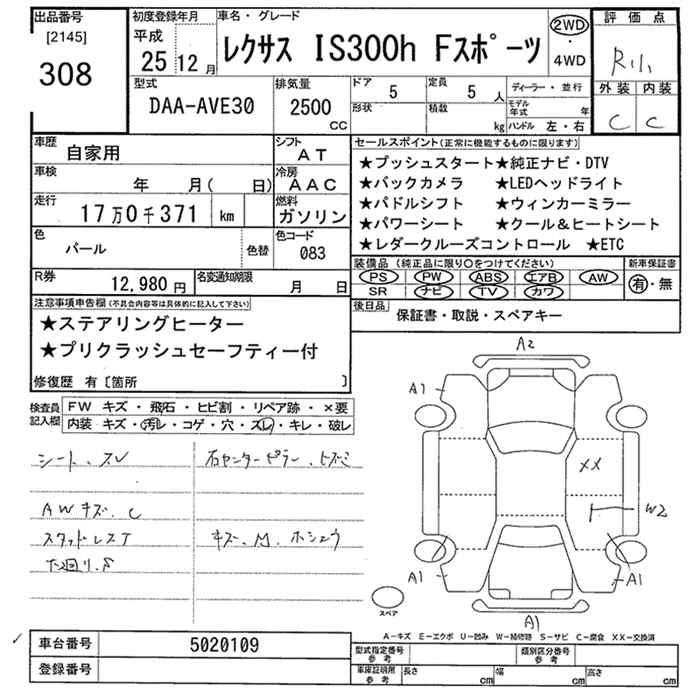 出品番号
[2145]
308
初度登録年月
平成
25年12月
車名・グレード
レクサス IS300h Fスポーツ
2WD
・
4WD
評価点
R
外装 内装
C C
型式
DAA-AVE30
排気量
2500
CC
ドア 5
形状
定員 5人
積数 kg
ディーラー・並行
モデル年式 年
ハンドル 左・右
車歴
自家用
シフト
AT
車検
年 月( 日)
冷房
AAC
走行
17万0千371 km
燃料
ガソリン
色
パール
色替
色コード
083
R券
12,980円
名変通知期限
月 日
セールスポイント(正常に機能するものに限ります)
★プッシュスタート★純正ナビ・DTV
★バックカメラ ★LEDヘッドライト
★パドルシフト ★ウィンカーミラー
★パワーシート ★クール&ヒートシート
★レダークルーズコントロール ★ETC
装備品(純正品に限り〇をつけてください)
PS PW ABS エアB AW
SR ナビ TV カワ
新車保証書
有・無
後日品
保証書・取説・スペアキー
注意事項申告欄(不具合内容等は具体的に記入して下さい)
★ステアリングヒーター
★プリクラッシュセーフティー付
修復歴 有〔箇所 〕
検査員記入欄
FW キズ・飛石・ヒビ割・リペア跡・×要
内装 キズ・汚レ・コゲ・穴・スレ・キレ・破レ
シート、スレ
AWキズ、C
スタッドレスT
下廻り、S
右センターピラー、ヒズミ
キズ、M、ホシュウ
A2
A1
XX
W2
A1
A1
A1
スペア
A-キズ E-エクボ U-凹み W-補修跡 S-サビ C-腐食 XX-交換済
車台番号 5020109
登録番号
型式指定番号 参考
類別区分番号 参考
車庫証明用 参考
長さ cm
幅 cm
高さ cm